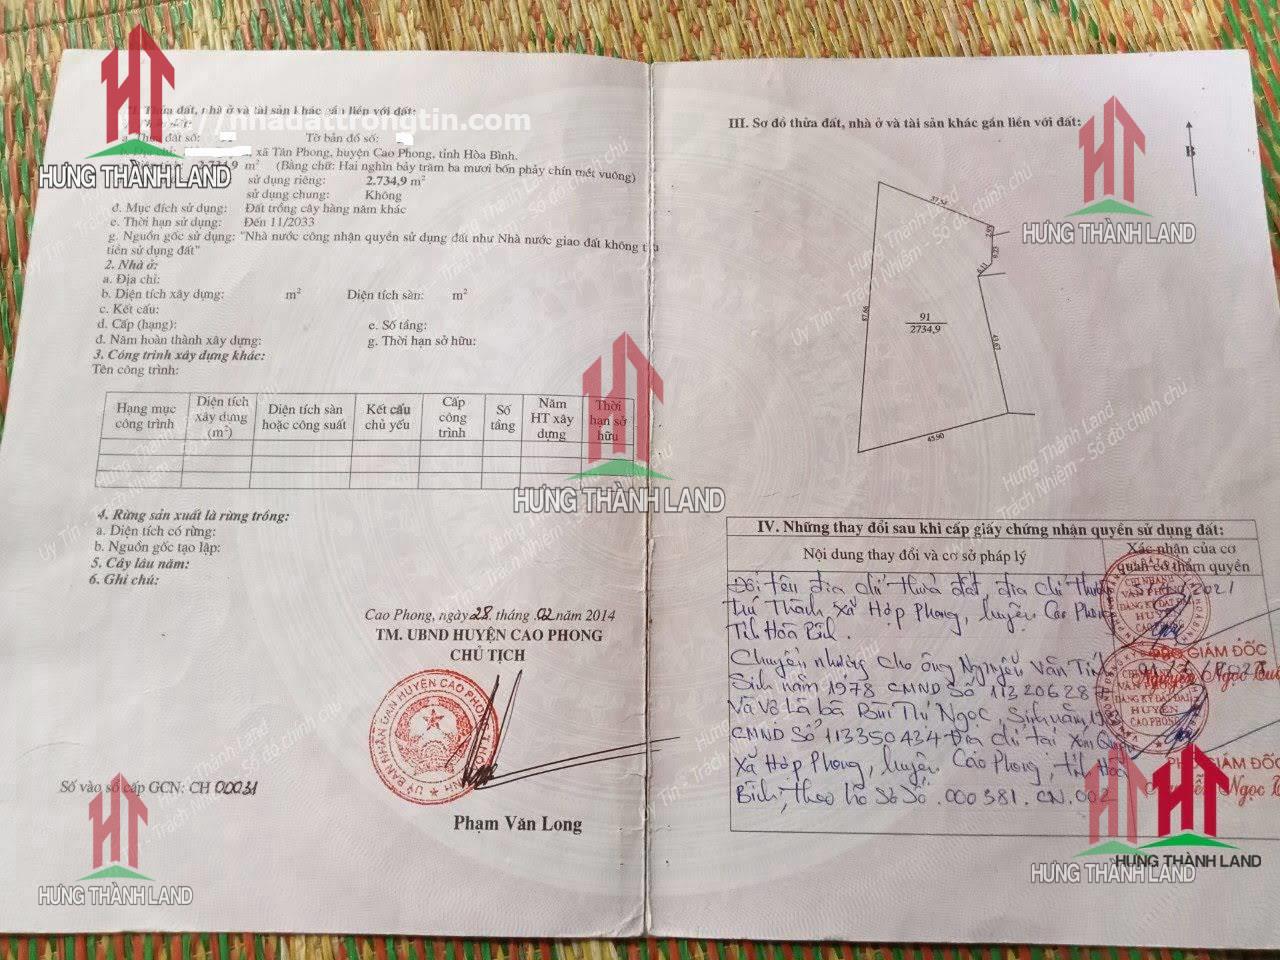 II. Thửa đất, nhà ở và tài sản khác gắn liền với đất:
nhadattrongtin.com
a. Thửa đất số: Tờ bản đồ số:
xã Tân Phong, huyện Cao Phong, tỉnh Hòa Bình.
2.734,9 m² (Bằng chữ: Hai nghìn bảy trăm ba mươi bốn phảy chín mét vuông)
sử dụng riêng: 2.734,9 m²
sử dụng chung: Không
đ. Mục đích sử dụng: Đất trồng cây hàng năm khác
e. Thời hạn sử dụng: Đến 11/2033
g. Nguồn gốc sử dụng: "Nhà nước công nhận quyền sử dụng đất như Nhà nước giao đất không
tiền sử dụng đất"
2. Nhà ở:
a. Địa chỉ:
b. Diện tích xây dựng: m² Diện tích sàn: m²
c. Kết cấu:
d. Cấp (hạng): e. Số tầng:
đ. Năm hoàn thành xây dựng: g. Thời hạn sở hữu:
3. Công trình xây dựng khác:
Tên công trình:
Hạng mục công trình
Diện tích xây dựng (m²)
Diện tích sàn hoặc công suất
Kết cấu chủ yếu
Cấp công trình
Số tầng
Năm HT xây dựng
Thời hạn sở hữu
4. Rừng sản xuất là rừng trồng:
a. Diện tích có rừng:
b. Nguồn gốc tạo lập:
5. Cây lâu năm:
6. Ghi chú:
Cao Phong, ngày 28 tháng 02 năm 2014
TM. UBND HUYỆN CAO PHONG
CHỦ TỊCH
Phạm Văn Long
Số vào sổ cấp GCN: CH 00031
III. Sơ đồ thửa đất, nhà ở và tài sản khác gắn liền với đất:
B
37.54
2.53
9.23
6.11
87.66
91
2734,9
43.67
45.90
IV. Những thay đổi sau khi cấp giấy chứng nhận quyền sử dụng đất:
Nội dung thay đổi và cơ sở pháp lý
Xác nhận của cơ quan có thẩm quyền
Đổi tên địa chỉ thửa đất, địa chỉ thường
trú Thành xã Hợp Phong, huyện Cao Phong
Tỉnh Hòa Bình.
Chuyển nhượng cho ông Nguyễn Văn
Sinh năm 1978 CMND Số
Và vợ là bà Bùi Thị Ngọc, Sinh năm
CMND Số 113350434 Địa chỉ tại xóm
xã Hợp Phong, huyện Cao Phong, tỉnh Hòa
Bình, theo hồ sơ số 000381.CN.002
CHI NHÁNH
VĂN PHÒNG
ĐĂNG KÝ ĐẤT ĐAI
HUYỆN
CAO PHONG
GIÁM ĐỐC
Nguyễn Ngọc
GIÁM ĐỐC
Ngọc
HƯNG THÀNH LAND
HƯNG THÀNH LAND
HƯNG THÀNH LAND
HƯNG THÀNH LAND
HƯNG THÀNH LAND
HƯNG THÀNH LAND